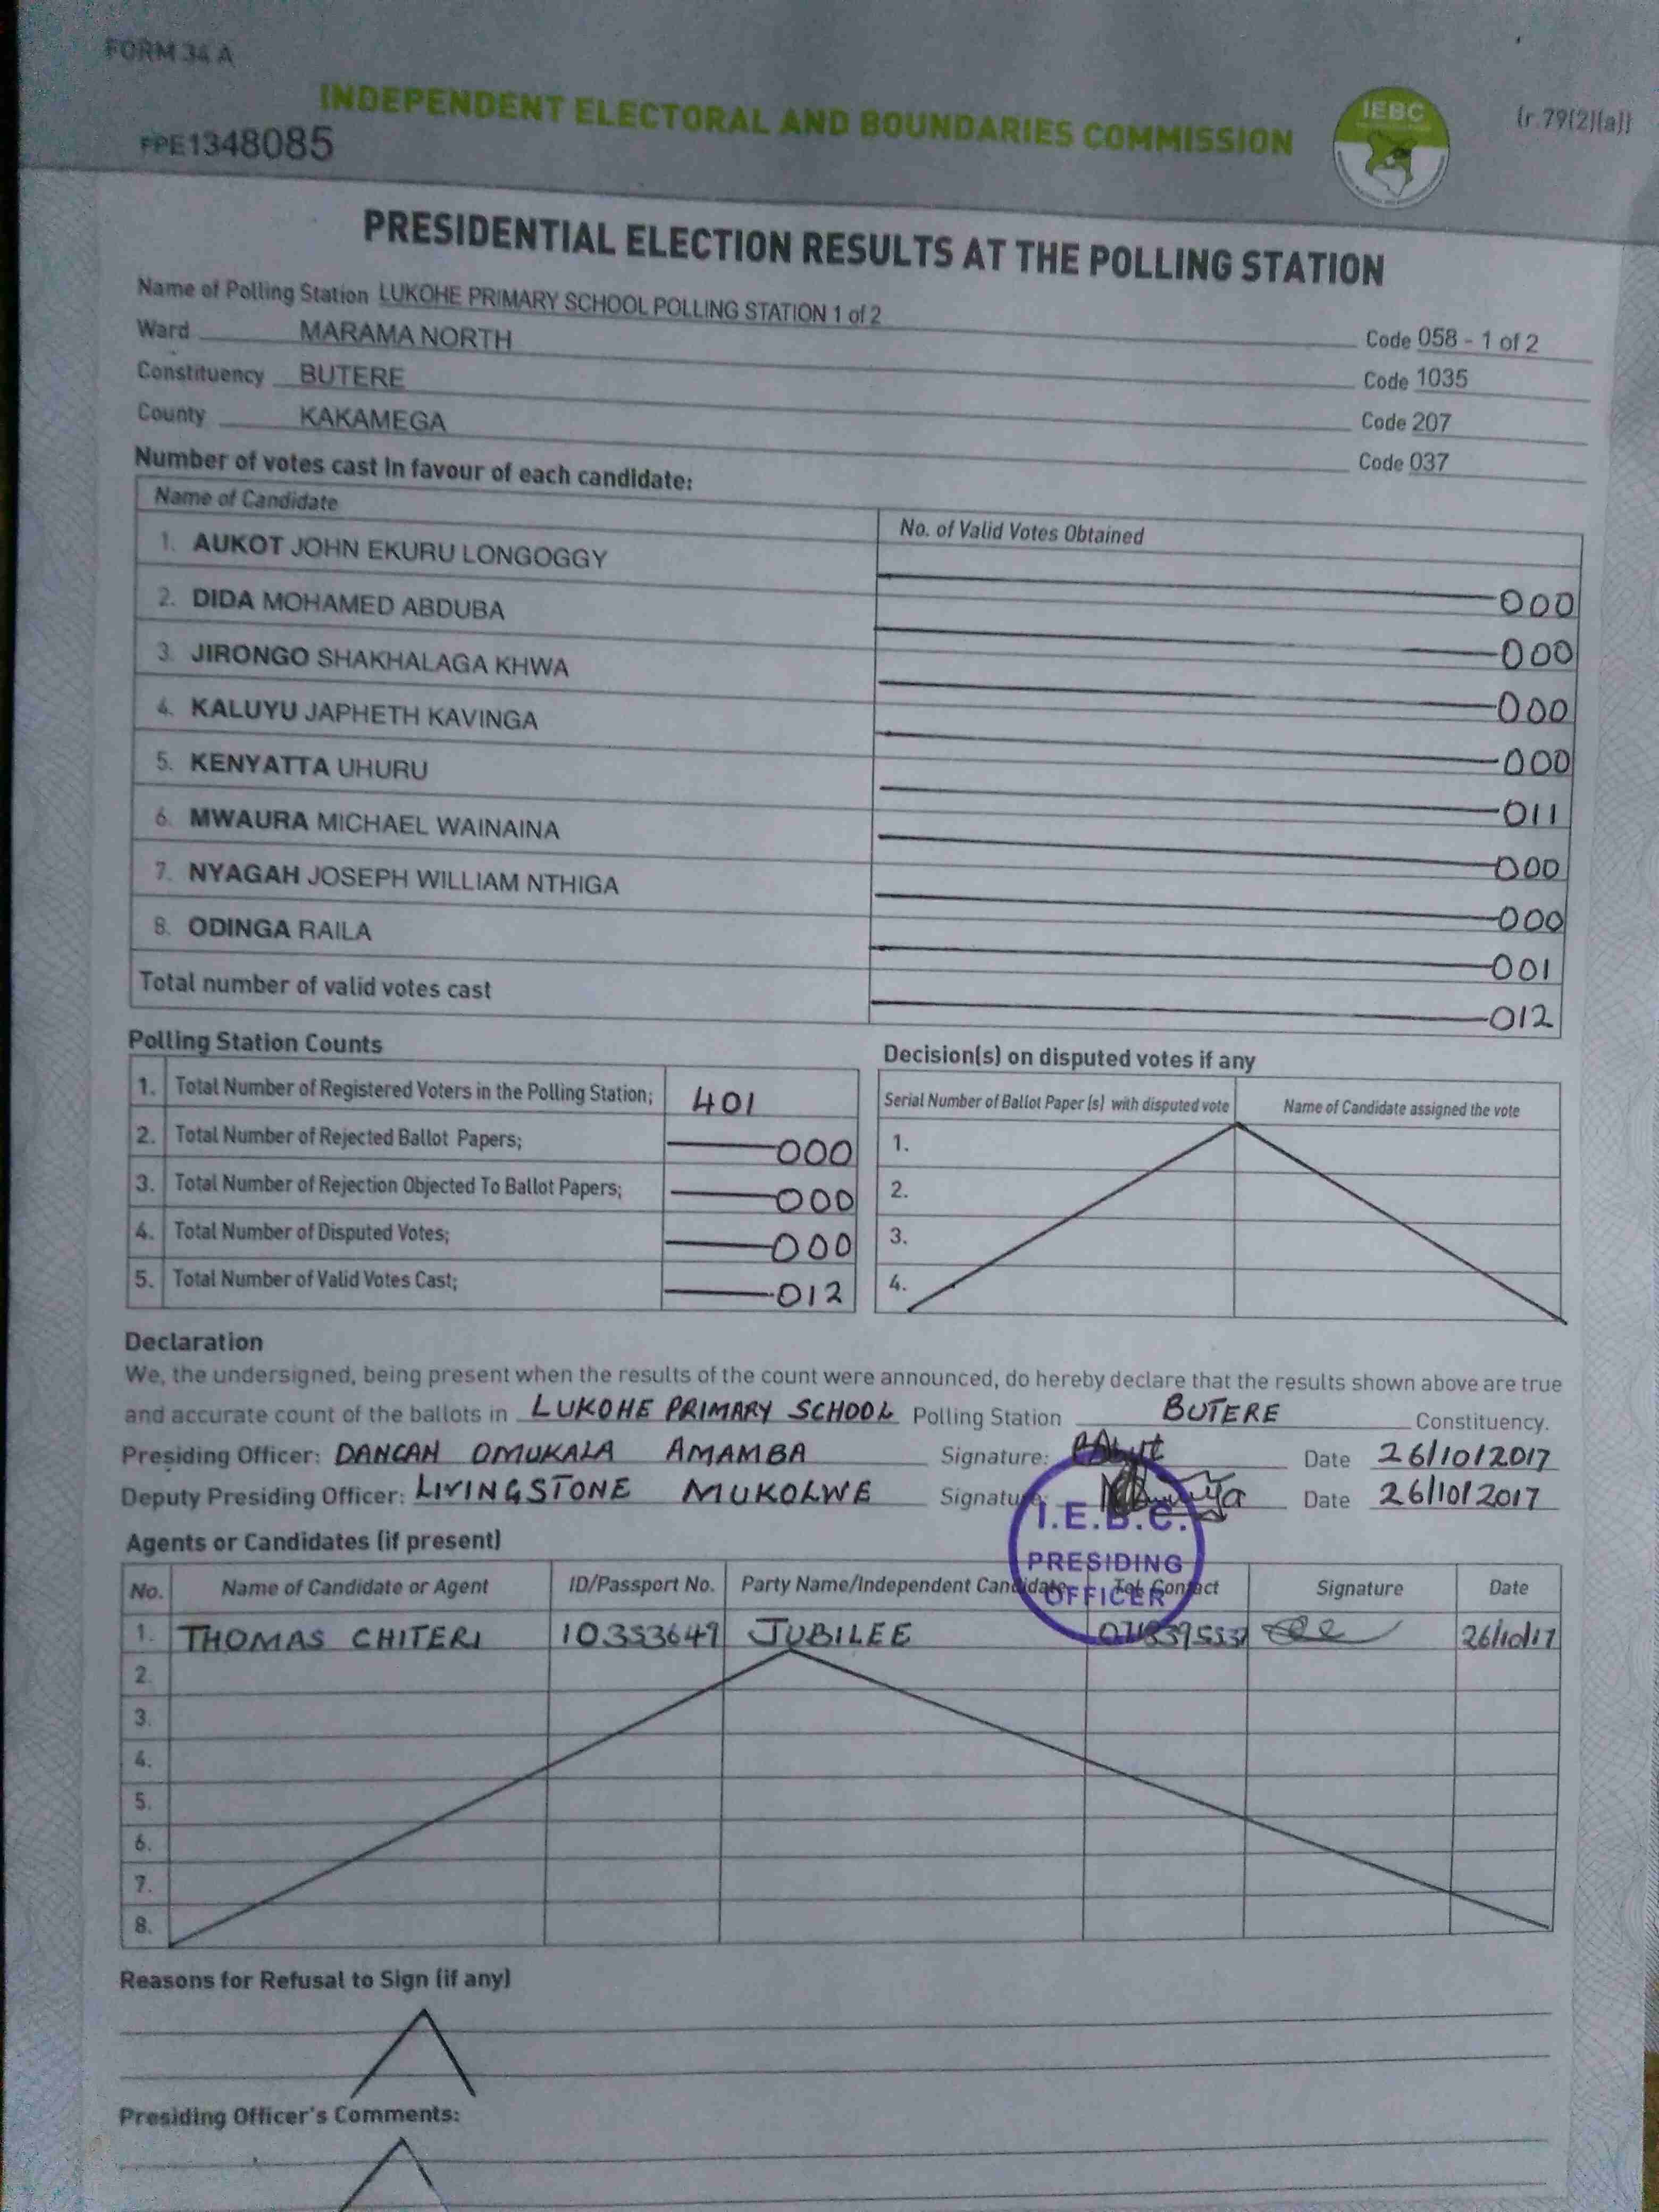 FORM 34 A
INDEPENDENT ELECTORAL AND BOUNDARIES COMMISSION
IEBC
(r.79(2)(a))
FPE1348085
PRESIDENTIAL ELECTION RESULTS AT THE POLLING STATION
Name of Polling Station LUKOHE PRIMARY SCHOOL POLLING STATION 1 of 2 Code 058 - 1 of 2
Ward MARAMA NORTH Code 1035
Constituency BUTERE Code 207
County KAKAMEGA Code 037
Number of votes cast In favour of each candidate:
Name of Candidate No. of Valid Votes Obtained
1. AUKOT JOHN EKURU LONGOGGY 000
2. DIDA MOHAMED ABDUBA 000
3. JIRONGO SHAKHALAGA KHWA 000
4. KALUYU JAPHETH KAVINGA 000
5. KENYATTA UHURU 011
6. MWAURA MICHAEL WAINAINA 000
7. NYAGAH JOSEPH WILLIAM NTHIGA 000
8. ODINGA RAILA 001
Total number of valid votes cast 012
Polling Station Counts
1. Total Number of Registered Voters in the Polling Station; 401
2. Total Number of Rejected Ballot Papers; 000
3. Total Number of Rejection Objected To Ballot Papers; 000
4. Total Number of Disputed Votes; 000
5. Total Number of Valid Votes Cast; 012
Decision(s) on disputed votes if any
Serial Number of Ballot Paper (s) with disputed vote Name of Candidate assigned the vote
1.
2.
3.
4.
Declaration
We, the undersigned, being present when the results of the count were announced, do hereby declare that the results shown above are true
and accurate count of the ballots in LUKOHE PRIMARY SCHOOL Polling Station BUTERE Constituency.
Presiding Officer: DANCAN OMUKALA AMAMBA Signature: Date 26/10/2017
Deputy Presiding Officer: LIVINGSTONE MUKOLWE Signature: Date 26/10/2017
I.E.B.C.
PRESIDING
OFFICER
Agents or Candidates (if present)
No. Name of Candidate or Agent ID/Passport No. Party Name/Independent Candidate Tel. Contact Signature Date
1. THOMAS CHITERI 10353649 JUBILEE 26/10/17
2.
3.
4.
5.
6.
7.
8.
Reasons for Refusal to Sign (if any)
Presiding Officer's Comments: